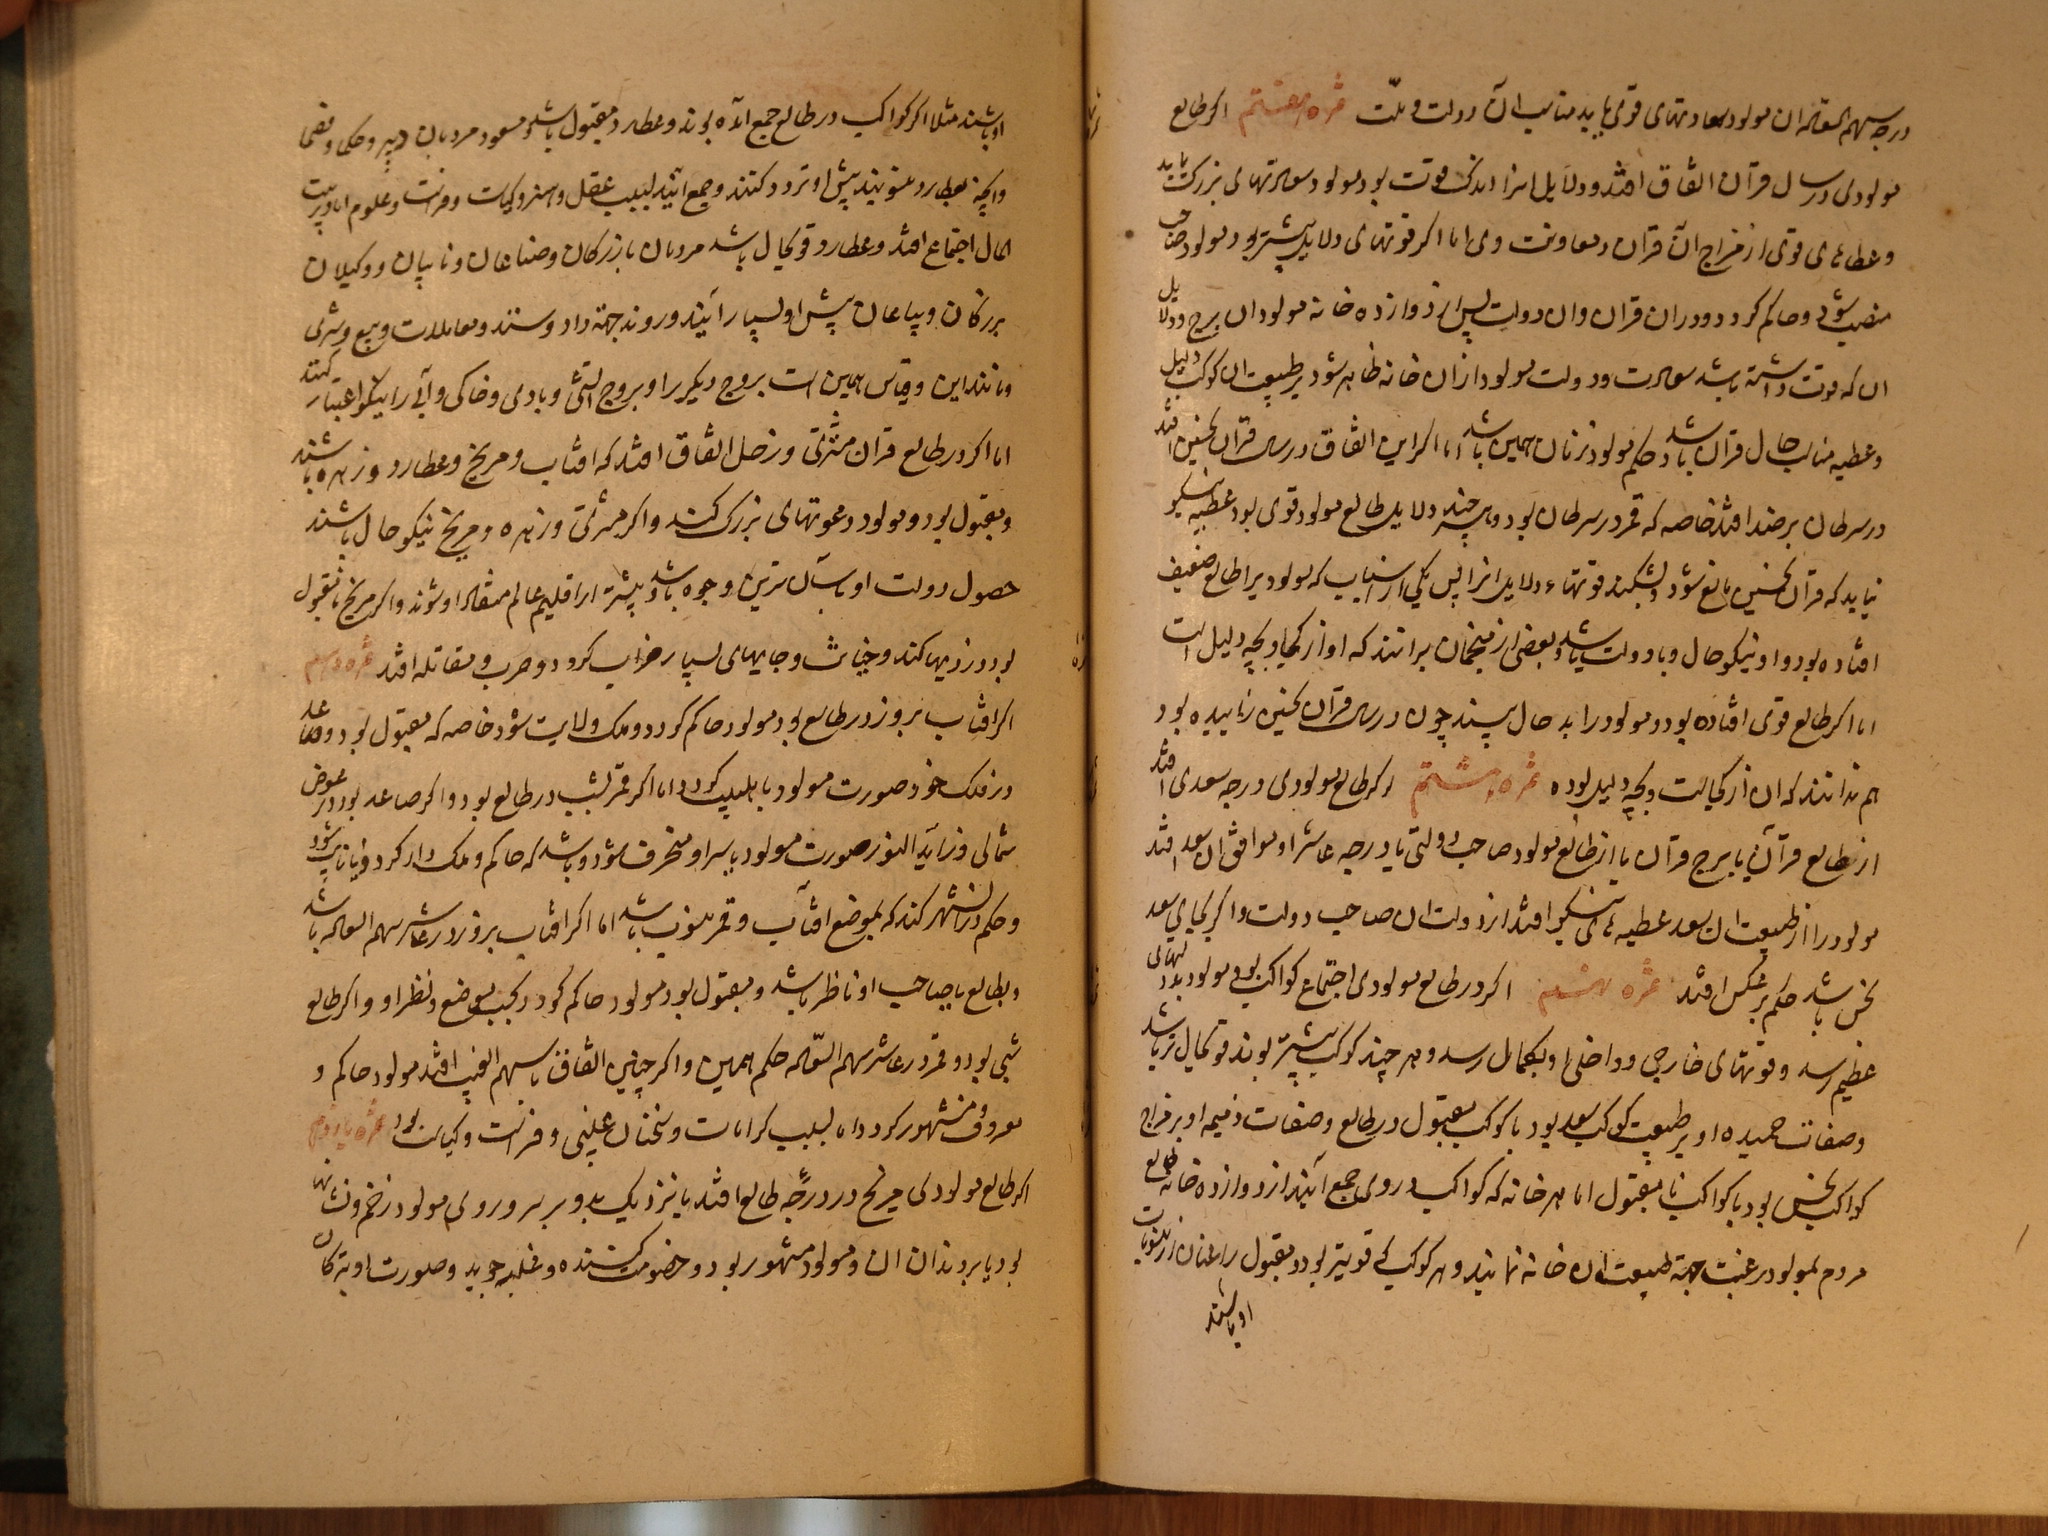 درجه سهم السعاده ان مولود سعادتهای قوی یابد مناسب آن دولت و ملت ثمره هفتم اکر طالع
مولودی در سال قران اتفاق افتد و دلایل قوت بود مولود سعادتهای بزرک یابد
و عطاهای قوی از مزاج آن قران و معاونت وی اما اکر قوتهای دلایل بیشتر بود مولود صاحب
منصب شود و حاکم کردد و دران قران وان دولت پس از دوازده خانه مولود ان برج و دلایل
ان که قوت داشته باشد سعادت و دولت مولود ازان خانه ظاهر شود بر طبیعت ان کوکب دلیل
و عطیه مناسب حال قران باشد و حکم مولود زنان همین باشد اما اکر این اتفاق در سال قران نحسین افتد
در سرطان بر ضد افتد خاصه که قمر در سرطان بود و هر چند دلایل طالع مولود قوی بود عطیه نیکو
نیابد که قران نحسین مانع شود و بشکند قوتهاء دلایل از اسباب که مولود بر طالع ضعیف
افتاده بود و او نیکو حال و با دولت باشد و بعضی از منجمان برانند که او از کجا و بچه دلیل است
اما اکر طالع قوی افتاده بود و مولود را بد حال بینند چون در سال قران نحسین زاییده بود
هم ندانند که ان از کجاست و بچه دلیل بوده ثمره هشتم اکر طالع مولودی درجه سعدی افتد
از طالع قران یا برج قران یا از طالع مولود صاحب دولتی یا درجه عاشر او موافق ان سعد افتد
مولود را از طبیعت ان سعد عطیه های نیکو افتد از دولت ان صاحب دولت و اکر بجای سعد
نحس باشد حکم بر عکس افتد ثمره نهم اکر در طالع مولودی اجتماع کواکب بود مولود بدولتهای
عظیم رسد و قوتهای خارجی و داخلی او بکمال رسد و هر چند کوکب بیشتر بوند قوتمال تر باشد
و صفات حمیده او بر طبیعت کوکب سعد بود یا کوکب مقبول در طالع و صفات ذمیمه او بر مزاج
کواکب نحس بود یا کواکب نا مقبول اما بهر خانه که کواکب در وی جمع آیند از دوازده خانه طالع
مردم بمولود رغبت جهة طبیعت ان خانه نمایند و هر کوکب که قویتر بود و مقبول از منسوبات
او باشند
او باشند مثلا اکر کواکب در طالع جمع آمده بوند و عطارد مقبول باشد و مسعود مردمان دبیر و حکما و فضلا
وانچه بعطارد منسوبند پیش او تردد کنند و جمع آیند بسبب عقل و هنر و کیاست و فراست و علوم
حال اجتماع افتد و عطارد قوتمال باشد مردمان بازرکان و صناعان و نایبان و وکیلان
بزرکان و بیاعان پیش او بسیار آیند و روند جهة داد و ستد و معاملات و بیع و شری
و مانند این و قیاس همین است بروج دیکر را و بروج آتشی و بادی و خاکی و آبی را نیکو اعتبار کنند
اما اکر در طالع قران مشتری و زحل اتفاق افتد که افتاب و مریخ و عطارد و زهره باشند
و مقبول بود و مولود دعوتهای بزرک کند و اکر مشتری و زهره و مریخ نیکو حال باشند
حصول دولت او بآسان ترین وجوه باشد و بیشتر از اقلیم عالم منقاد او شوند و اکر مریخ نامقبول
بود دزدیها کند و خباثت و جایهای بسیار خراب کردد و حرب و مقاتله افتد ثمره دهم
اکر افتاب بروز در طالع بود مولود حاکم کردد و ملک ولایت شود خاصه که مقبول بود و صاعد
در فلک خود صورت مولود با هیبت کردد اما اکر قمر بشب در طالع بود و اکر صاعد بود در عرض
شمالی و زاید النور صورت مولود منحرف شود و باشد که حاکم و ملک دار کردد و یا نایب شود
و حکم دران شهر کند که بموضع افتاب و قمر منسوب باشد اما اکر افتاب بروز در عاشر سهم السعاده باشد
و بطالع یا صاحب او ناظر باشد و مقبول بود مولود حاکم کردد بحسب موضع و نظر او و اکر طالع
شبی بود و قمر در عاشر سهم السعاده حکم همین و اکر چنین اتفاق با سهم الغیب افتد مولود حاکم و
معروف و مشهور کردد اما بسبب کرامات و سخنان غیبی و فراست و کیاست بود ثمره یازدهم
اکر طالع مولودی مریخ در درجه طالع افتد یا نزدیک بدو بر سر و روی مولود زخم و نشانها
بود یا بر دندان ان و مولود مشهور بود و خصومت کننده و غلبه جوید و صورت او بترکان